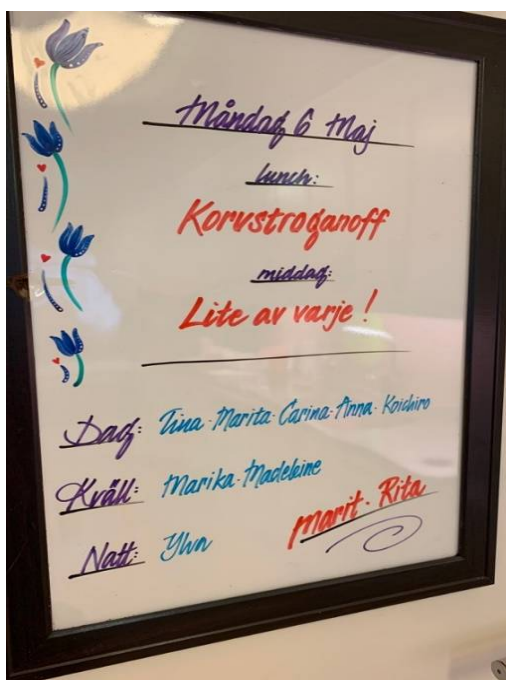 Måndag 6 Maj
lunch:
Korvstroganoff
middag:
Lite av varje!
Dag: Tina-Marita-Carina-Anna-Koichiro
Kväll: Marika-Madeleine
Natt: Ylva
Marit-Rita